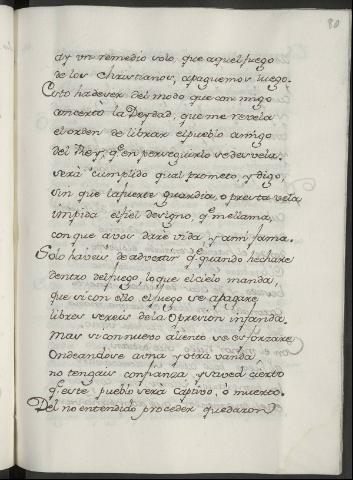 80
ay vn remedio solo que aquel fuego
de los Christianos, apaguemos luego.
Esto ha de ser del modo que con migo
concertò la Deydad, que me revela
el orden de librar el pueblo amigo
del Rey, q̃ en perseguirlo se desvela;
serà cumplido qual prometo, y digo,
sin que la fuerte guardia, o presta vela
impida el fiel designo, q̃ me llama,
con que a vos darè vida y a mi fama.
Solo haveis de advertir q̃ quando hechare
dentro del fuego, lo que el cielo manda,
que si con ello el fuego se apagare
libres sereis de la opresion infanda.
Mas si con nuevo aliento se esforzare
Ondeandose a vna y otra vanda
no tengais confianza, y saved cierto
q̃ este pueblo serà captivo, ò muerto.
Del no entendido proceder quedaron